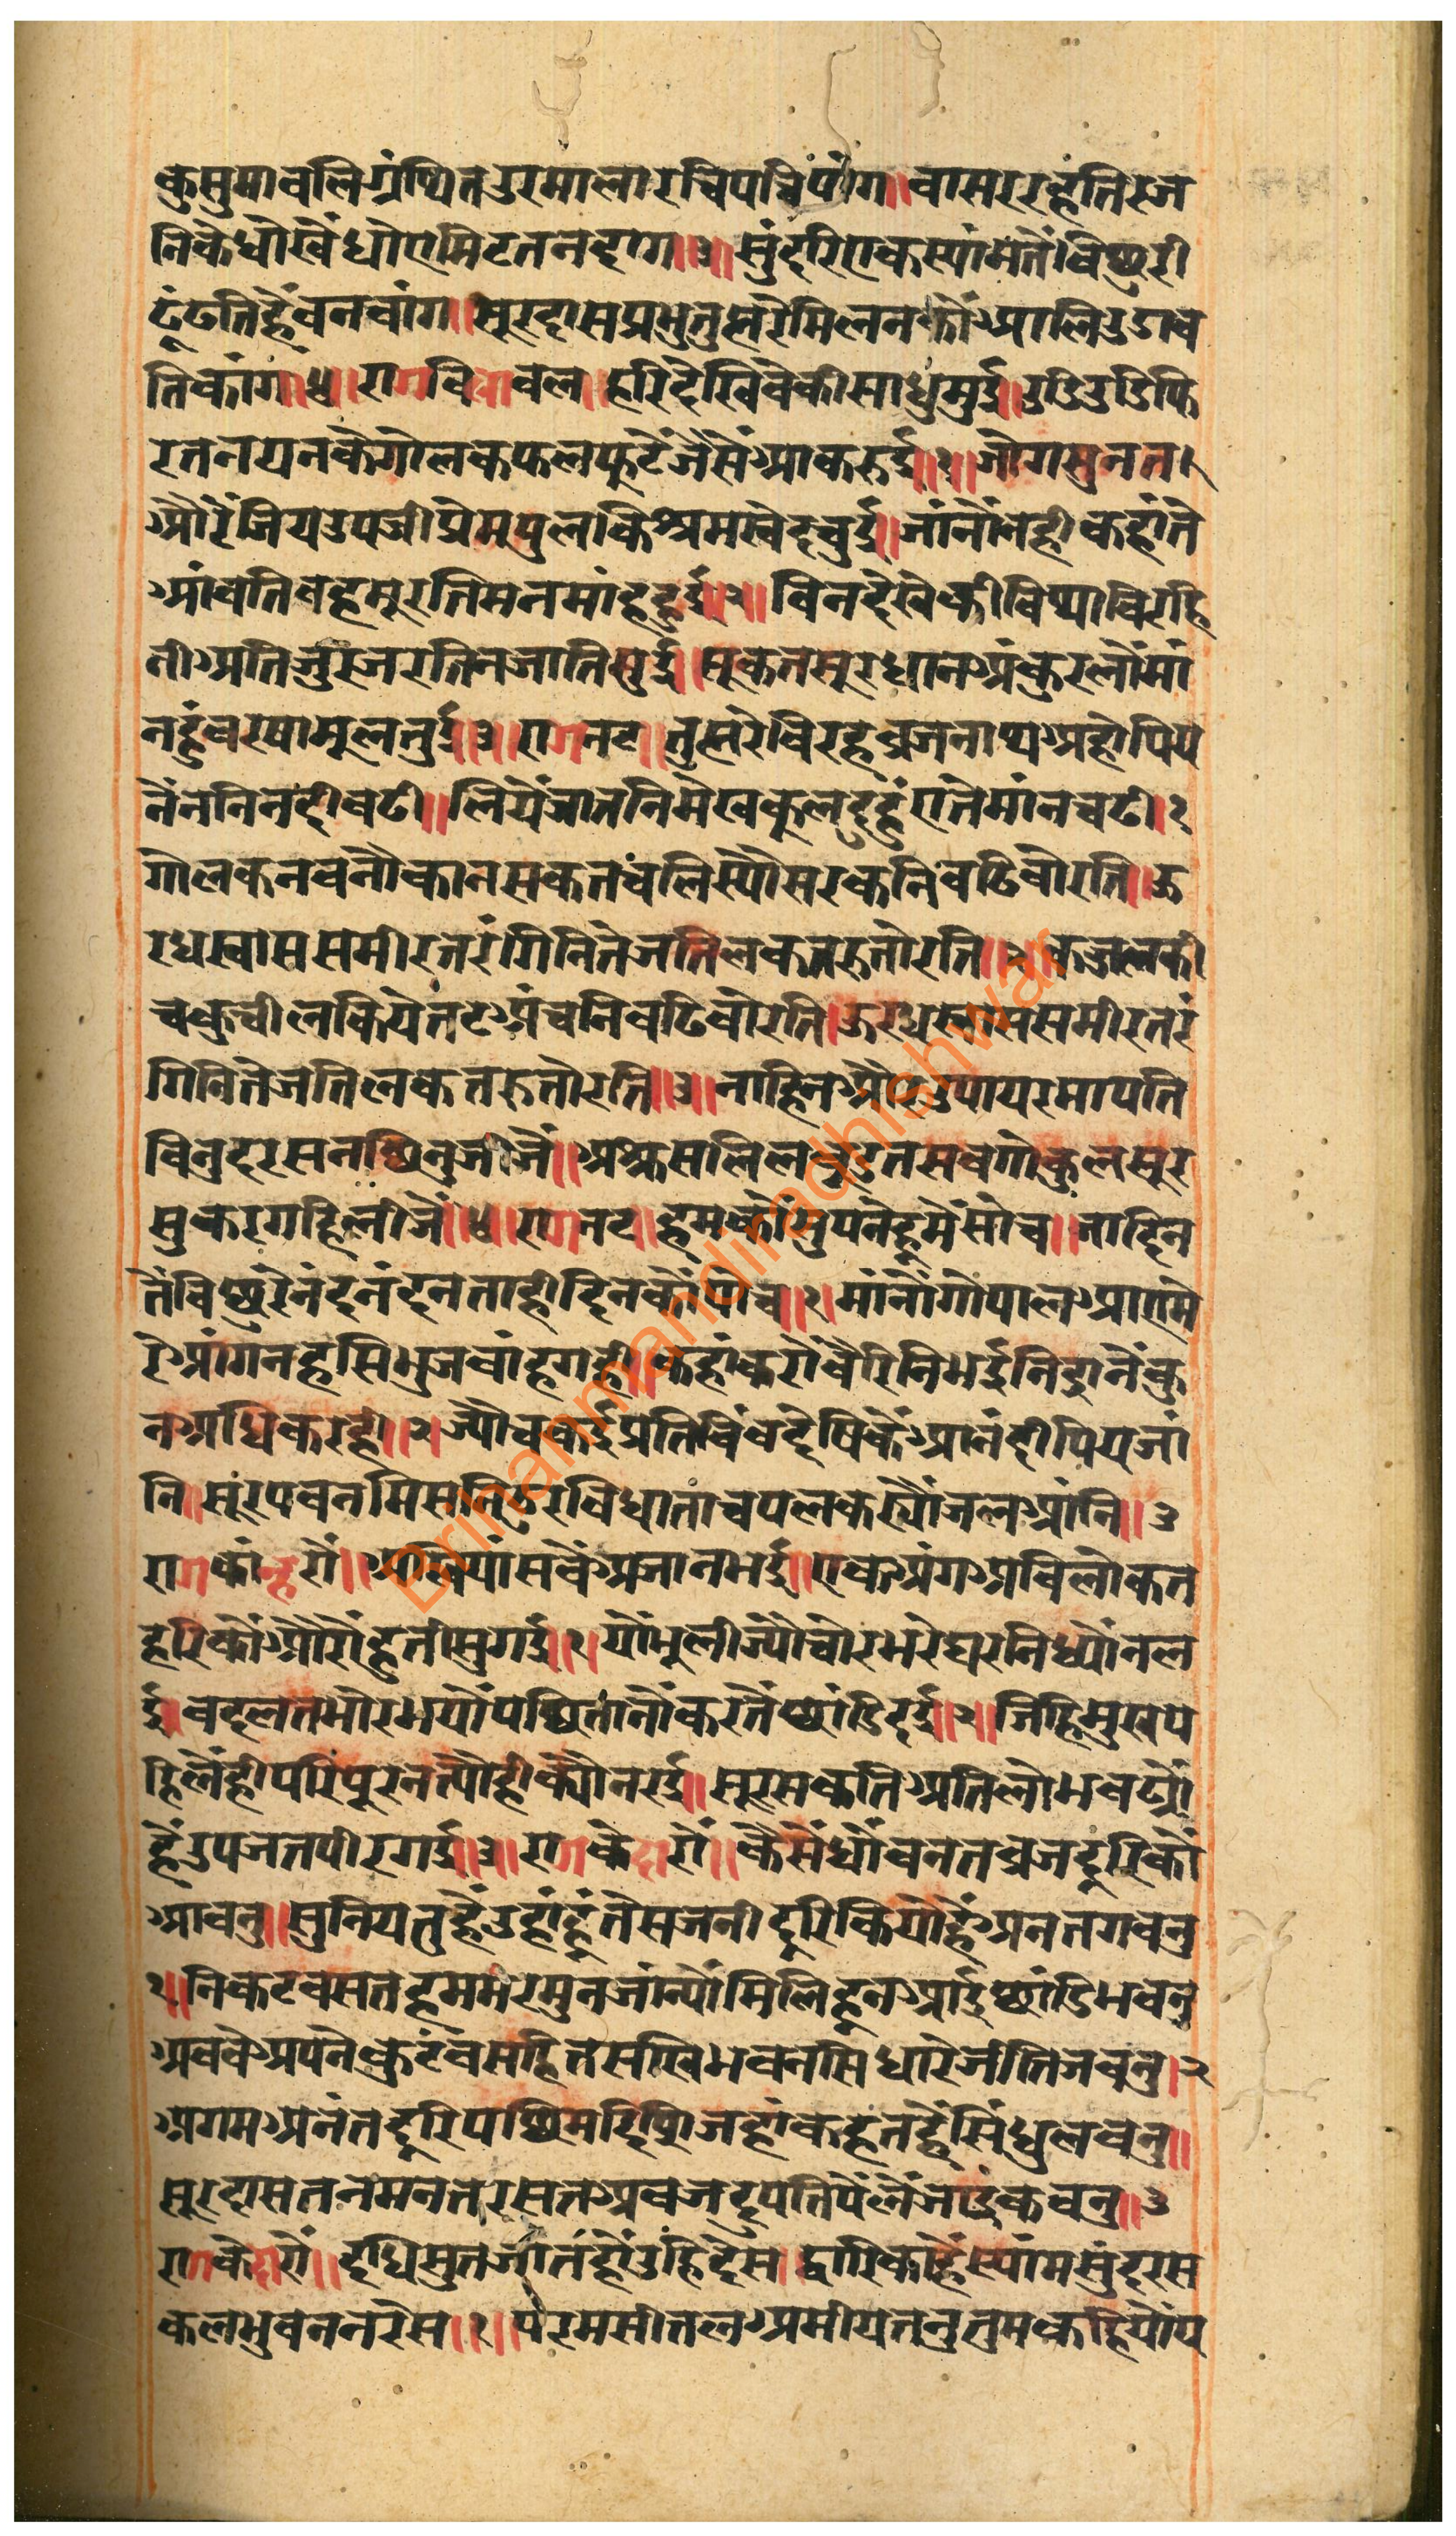 कुसुमावलिग्रंथितउरमालारचिपचिपांग॥वासररहतिरज
निकेधोखेंधोएमिटतनदाग॥३॥सुंदरिएकस्यांमतेंविछुरी
ढूंढतिहैंवनवाग॥सूरदासप्रभुतुह्मरेमिलनकोंआलिउडाव
तिकाग॥४॥रागविलावल॥हरिदेखिवेकीसाधमुई॥उडिउडिफि
रतनयनकेगोलकफलफुटेंजैसेंआकरुई॥१॥जोगसुनत
औरेंजियउपजीप्रेमपुलकिश्रमस्वेदचुई॥जांनोनहीकहांते
आवतिवहमूरतिमनमांहहुई॥२॥विनदेखेकीविथाविरहि
नीअतिजुरजरतिनजातिछुई॥सूकतसूरधानअंकुरलोंमां
नहुंवरषामूलतुई॥३॥रागनट॥तुह्मरेविरहव्रजनाथअहोपिय
नेंननिनदीवढी॥लियेंजातनिमेखकुलदुहुंएतेमांनचढी॥१
गोलकनवनौकानसकतचलिस्यौसरकनिवढिवोरति॥ऊ
रधस्वाससमीरतरंगिनितेजतिलकतरुतोरति॥२॥कज्जलकी
चकुचीलकियेतटअंचनिवढिवोरति॥ऊरधस्वाससमीरतरं
गिनितेजतिलकतरुतोरति॥३॥नाहिनऔरउपायरमापति
विनुदरसनछिनुजीजें॥अश्रुसलिलवूडतसवगोकुलसूर
सुकरगहिलीजें॥४॥रागनट॥हमकोंसुपनेहूमेंसोच॥जादिन
तेंविछुरेनंदनंदनताहीदिनकोंपोच॥१॥मांनोंगोपालआएमे
रेआंगनहसिभुजवांहगही॥कहांकरोंवैरिनिभईनिद्रानेंकु
नअधिकरही॥२॥ज्यौचकईप्रतिबिंबदेषिकेंआनंदीपियजां
नि॥सूरपवनमिसनिठुरविधाताचपलकस्योजलआंनि॥३
रागकांन्हरो॥अखियांसवेंअजानभई॥एकअंगअविलोकत
हरिकोंऔरोंहुतीसुगई॥१॥योंभूलीज्योंचोरभरेघरनिध्योंनल
ई॥वदलतभोरभयोपछितानोंकरतेंछांडिदई॥२॥जिहिमुखपे
हिलेंहीपरिपूरनत्योहीक्योनरई॥सूरसकतिअतिलोभवढ्यो
हेंउपजतपीरगई॥३॥रागकेदारो॥कैसेंधोंवनतव्रजदूरिकों
आवनु॥सुनियतुहेंउहांहुंतेसजनीदूरिकियोहेंअनतगवनु
१॥निकटवसतहममरमुनजांन्योमिलिहूनआईछांडिभवनु
अववेअपनेकुटंवसहितसखिभवनसिधारेजीतिजवनु॥२
अगमअनंतदूरिपछिमदिषिजहांकहतहेंसिंधुलवनु॥
सूरदासतनमनतरसतअवजदुपतिपेंलेंजाइकवनु॥३
रागकेदारो॥दधिसुतजातहोउहिदेस॥द्वारिकाहेंस्यांमसुंदरस
कलभुवननरेस॥१॥परमसीतलअमीयतनुतुमकहियोंय
Brihanmandiradhishwar